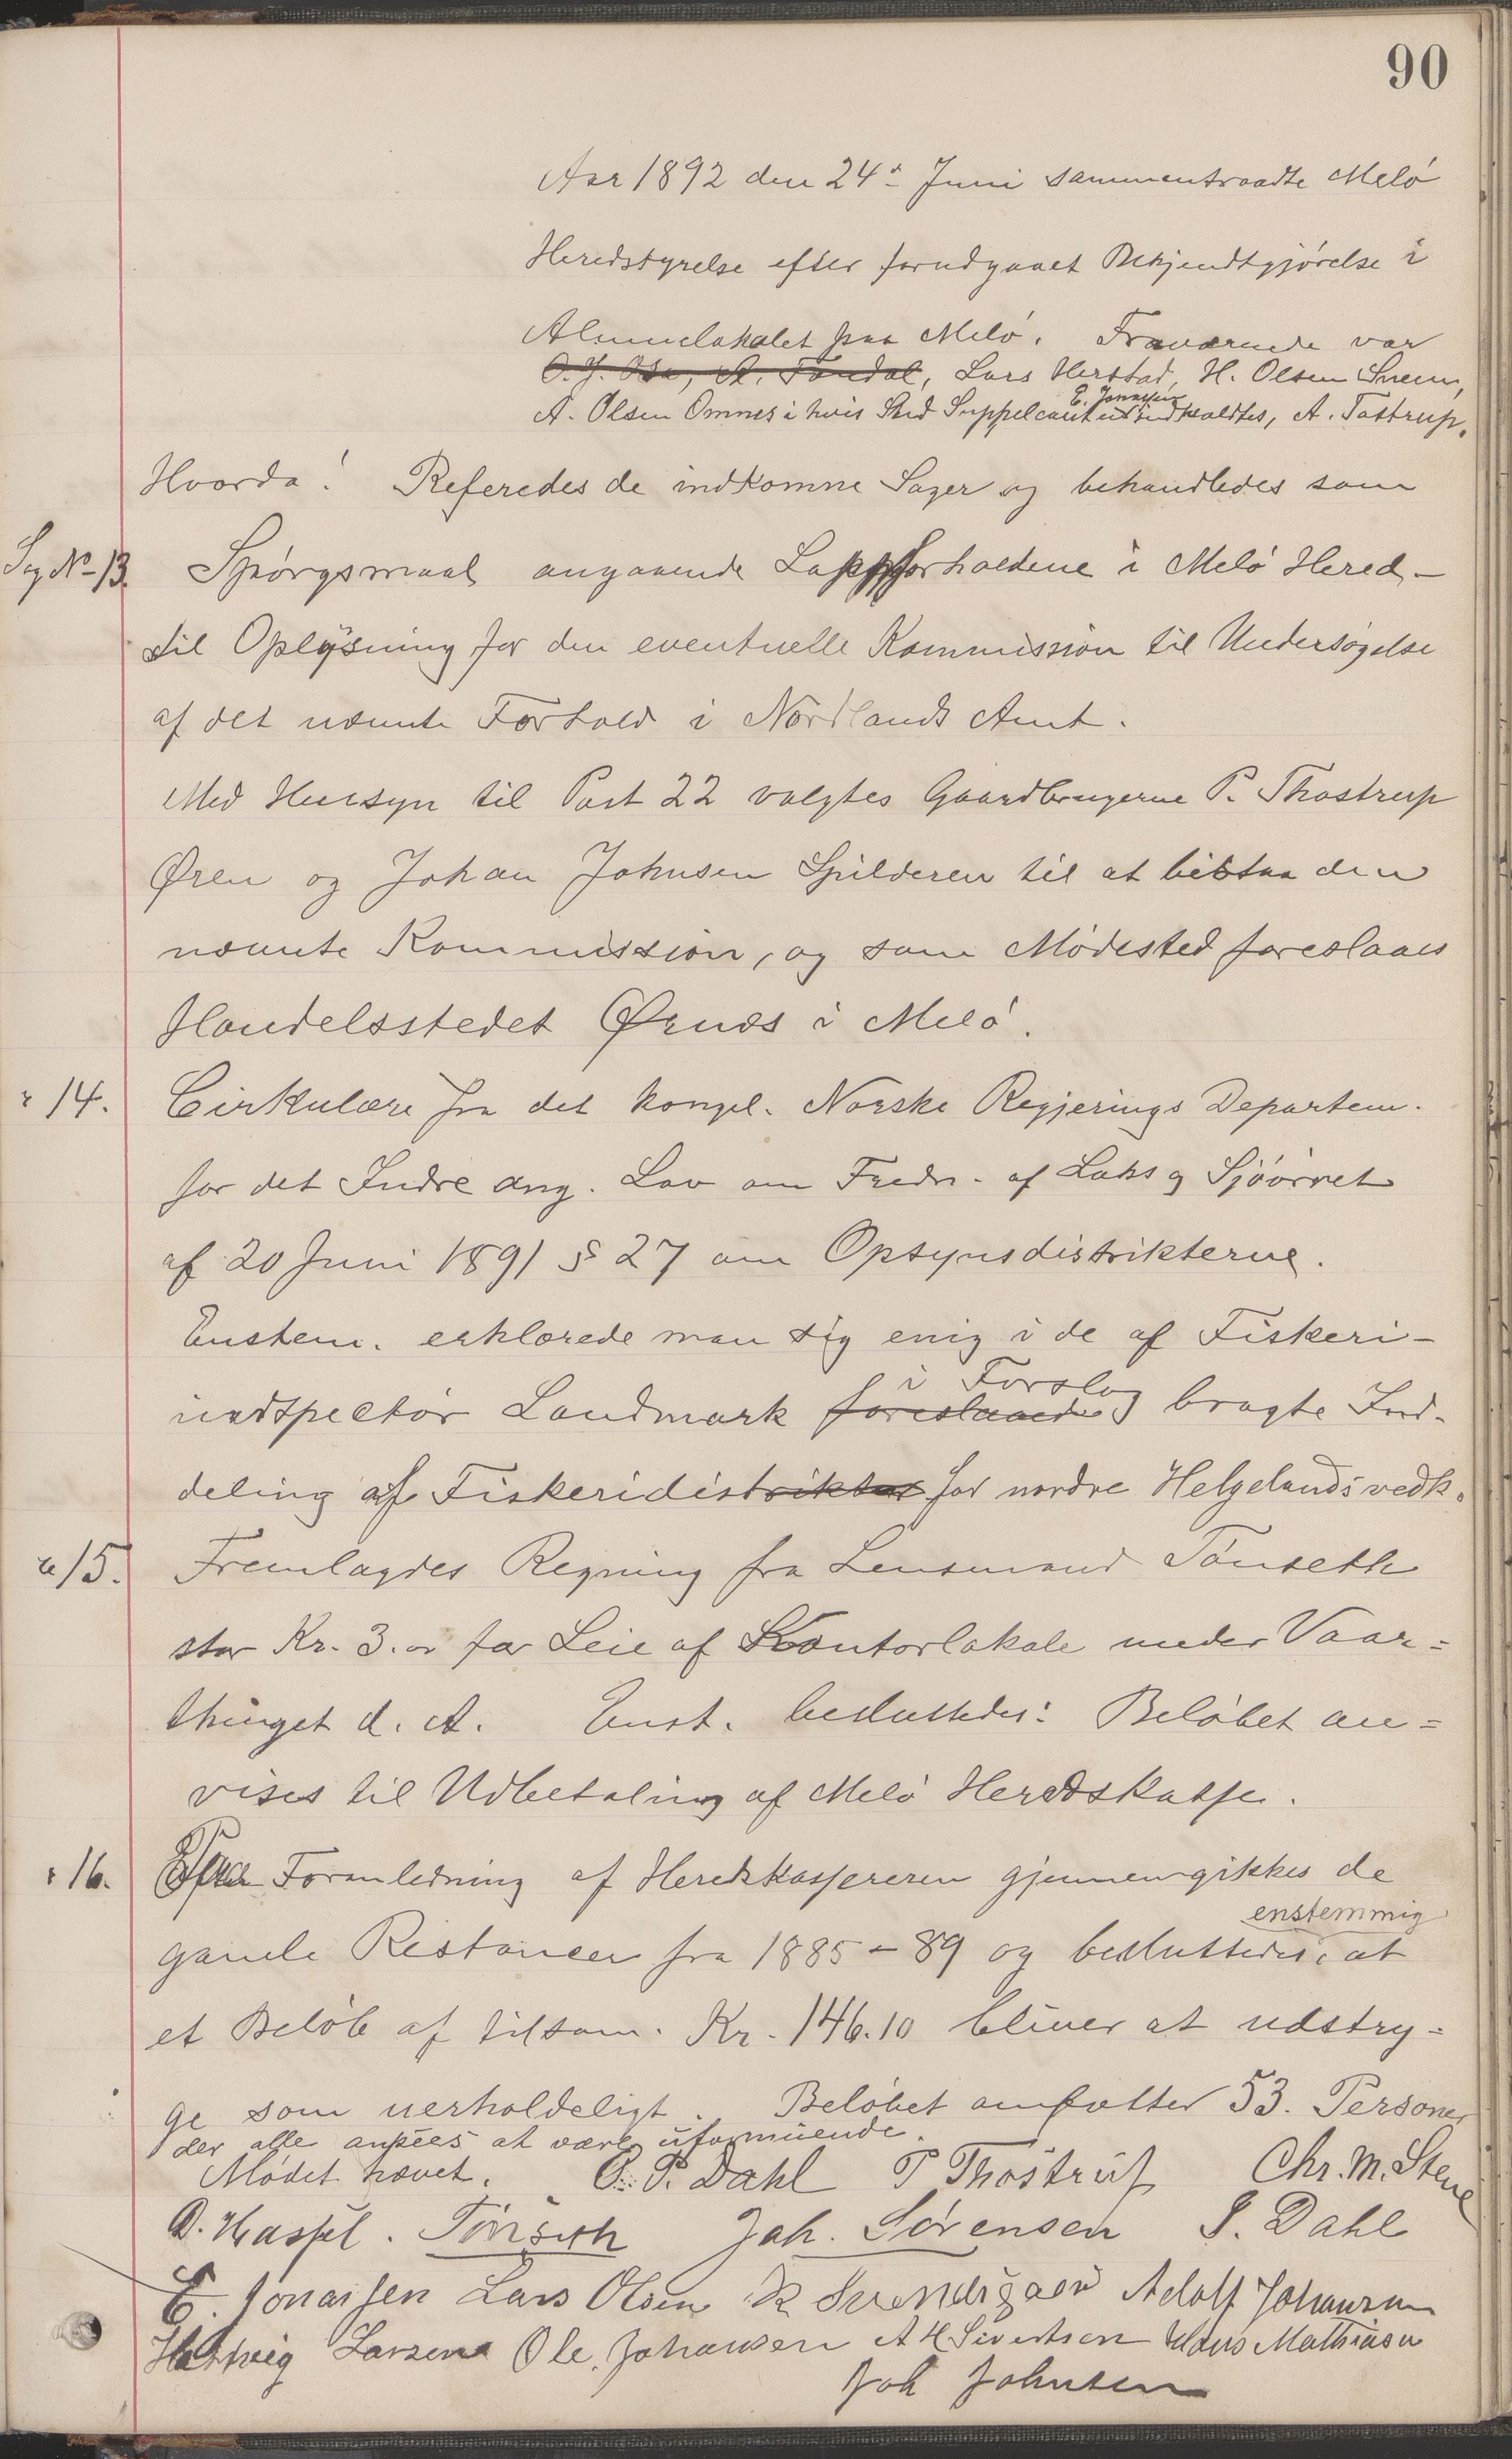 90
Aar 1892 den 24de Juni sammentraadte Melö
Heredstyrelse efter forudgaaet Bekjendtgjörelse i
Almuelokalet paa Melö. Fraværende var
O. J. Osa, A. Fondal, Lars Herstad, H. Olsen Sneun,
E. Jonassen
A. Olsen Omnes i hvis Sted Suppleant indkaldtes, A. Tostrup.
Hvorda! Referedes de indkomne Sager og behandledes som
Sag No 13. Spörgsmaal angaaende Lappforholdene i Melö Hered –
til Oplysning for den eventuelle Kommission til Undersögelse
af det nævnte Forhold i Nordlands Amt.
Med Hensyn til Post 22 valgtes Gaardbrugerne P. Thostrup
Ören og Johan Johnsen Spilderen til at bistaa den
nævnte Kommission, og som Mödested foreslaaes
Handelsstedet Ørnæs i Melö.
" 14. Cirkulære fra det kongel. Norske Regjerings Departem.
for det Indre ang. Lov om Fredn. af Laks og Sjöörret
af 20 Juni 1891 § 27 om Opsynsdistrikterne.
Enstem. erklærede man sig enig i de af Fiskeri-
i Forslag
indspectör Landmark foreslaaede bragte Ind-
deling af Fiskeridistrikter for nordre Helgelands vedk.
" 15. Fremlagdes Regning fra Lensmand Tönseth
stor Kr. 3.00 for Leie af Kontorlokale under Vaar=
thinget d. A. Enst. besluttedes: Belöbet an=
vises til Udbetaling af Melö Heredskasse.
" 16. Efter Foranledning af Heredskassereren gjennemgikkes de
enstemmig
gamle Restancer fra 1885 – 89 og besluttedes at
et Belöb af tilsam. Kr. 146.10 bliver at udstry=
ge som uerholdeligt. Belöbet omfatter 53. Personer
der alle ansees at være uformuende.
Mödet hævet. P. P. Dahl P Thostrup Chr. M. Stene
D. Hassel. Tönseth Joh. Sörensen S. Dahl
E. Jonassen Lars Olsen K Svendsgaard Adolf Johansen
Hartvig Larsen Ole Johansen A H Sivertsen Hans Mathisen
Joh Johnsen